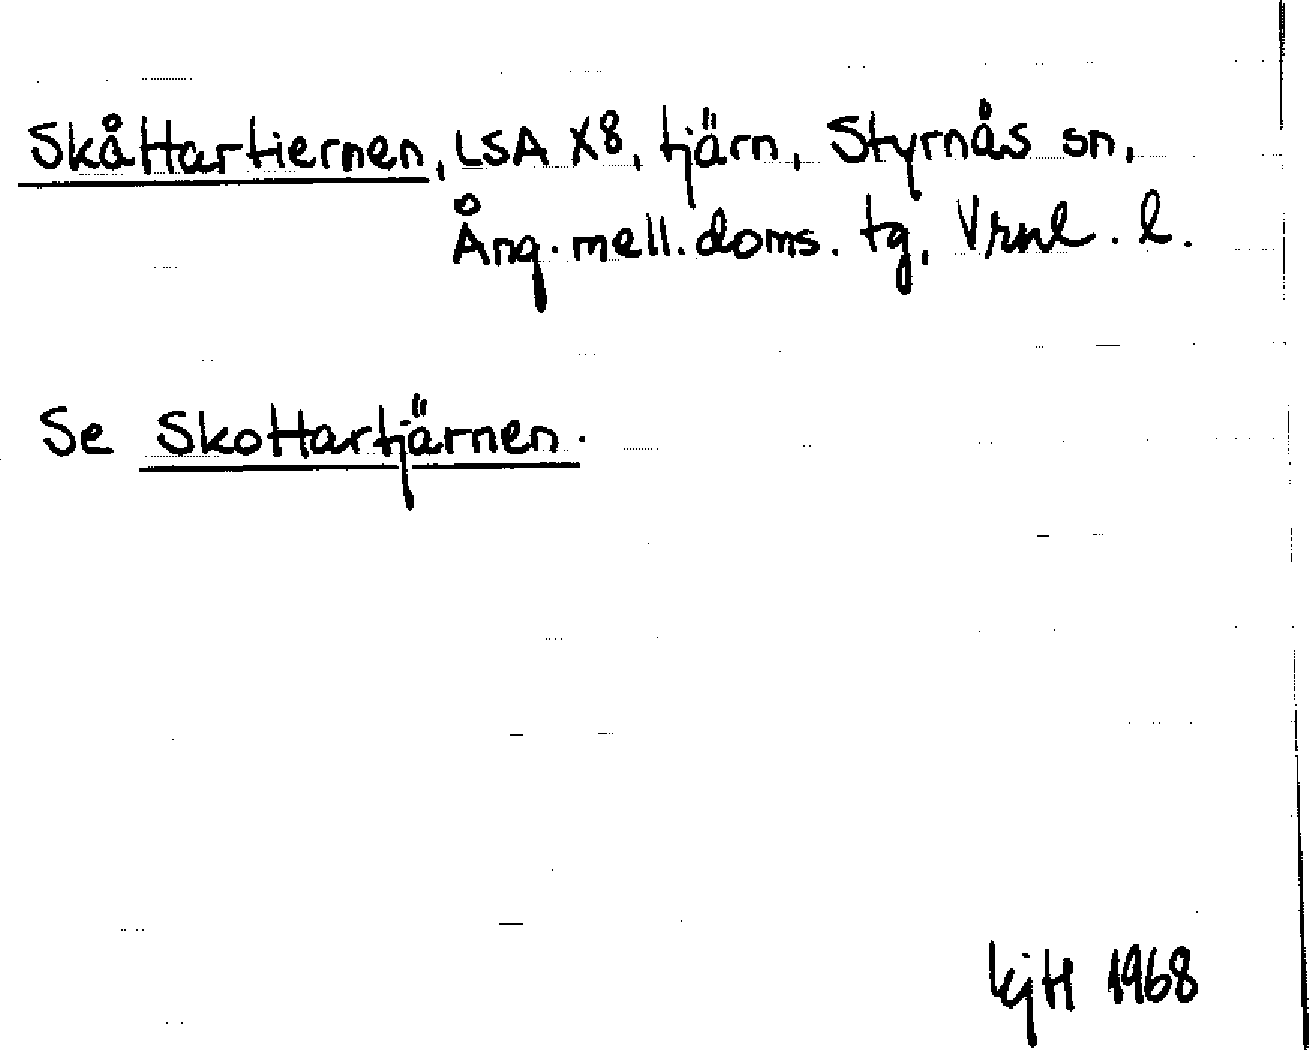 Skåttartiernen, LSA X8, tjärn, Styrnäs sn,
Ång. mell. doms. tg, Vrnl. l.
Se Skottartjärnen.
1968